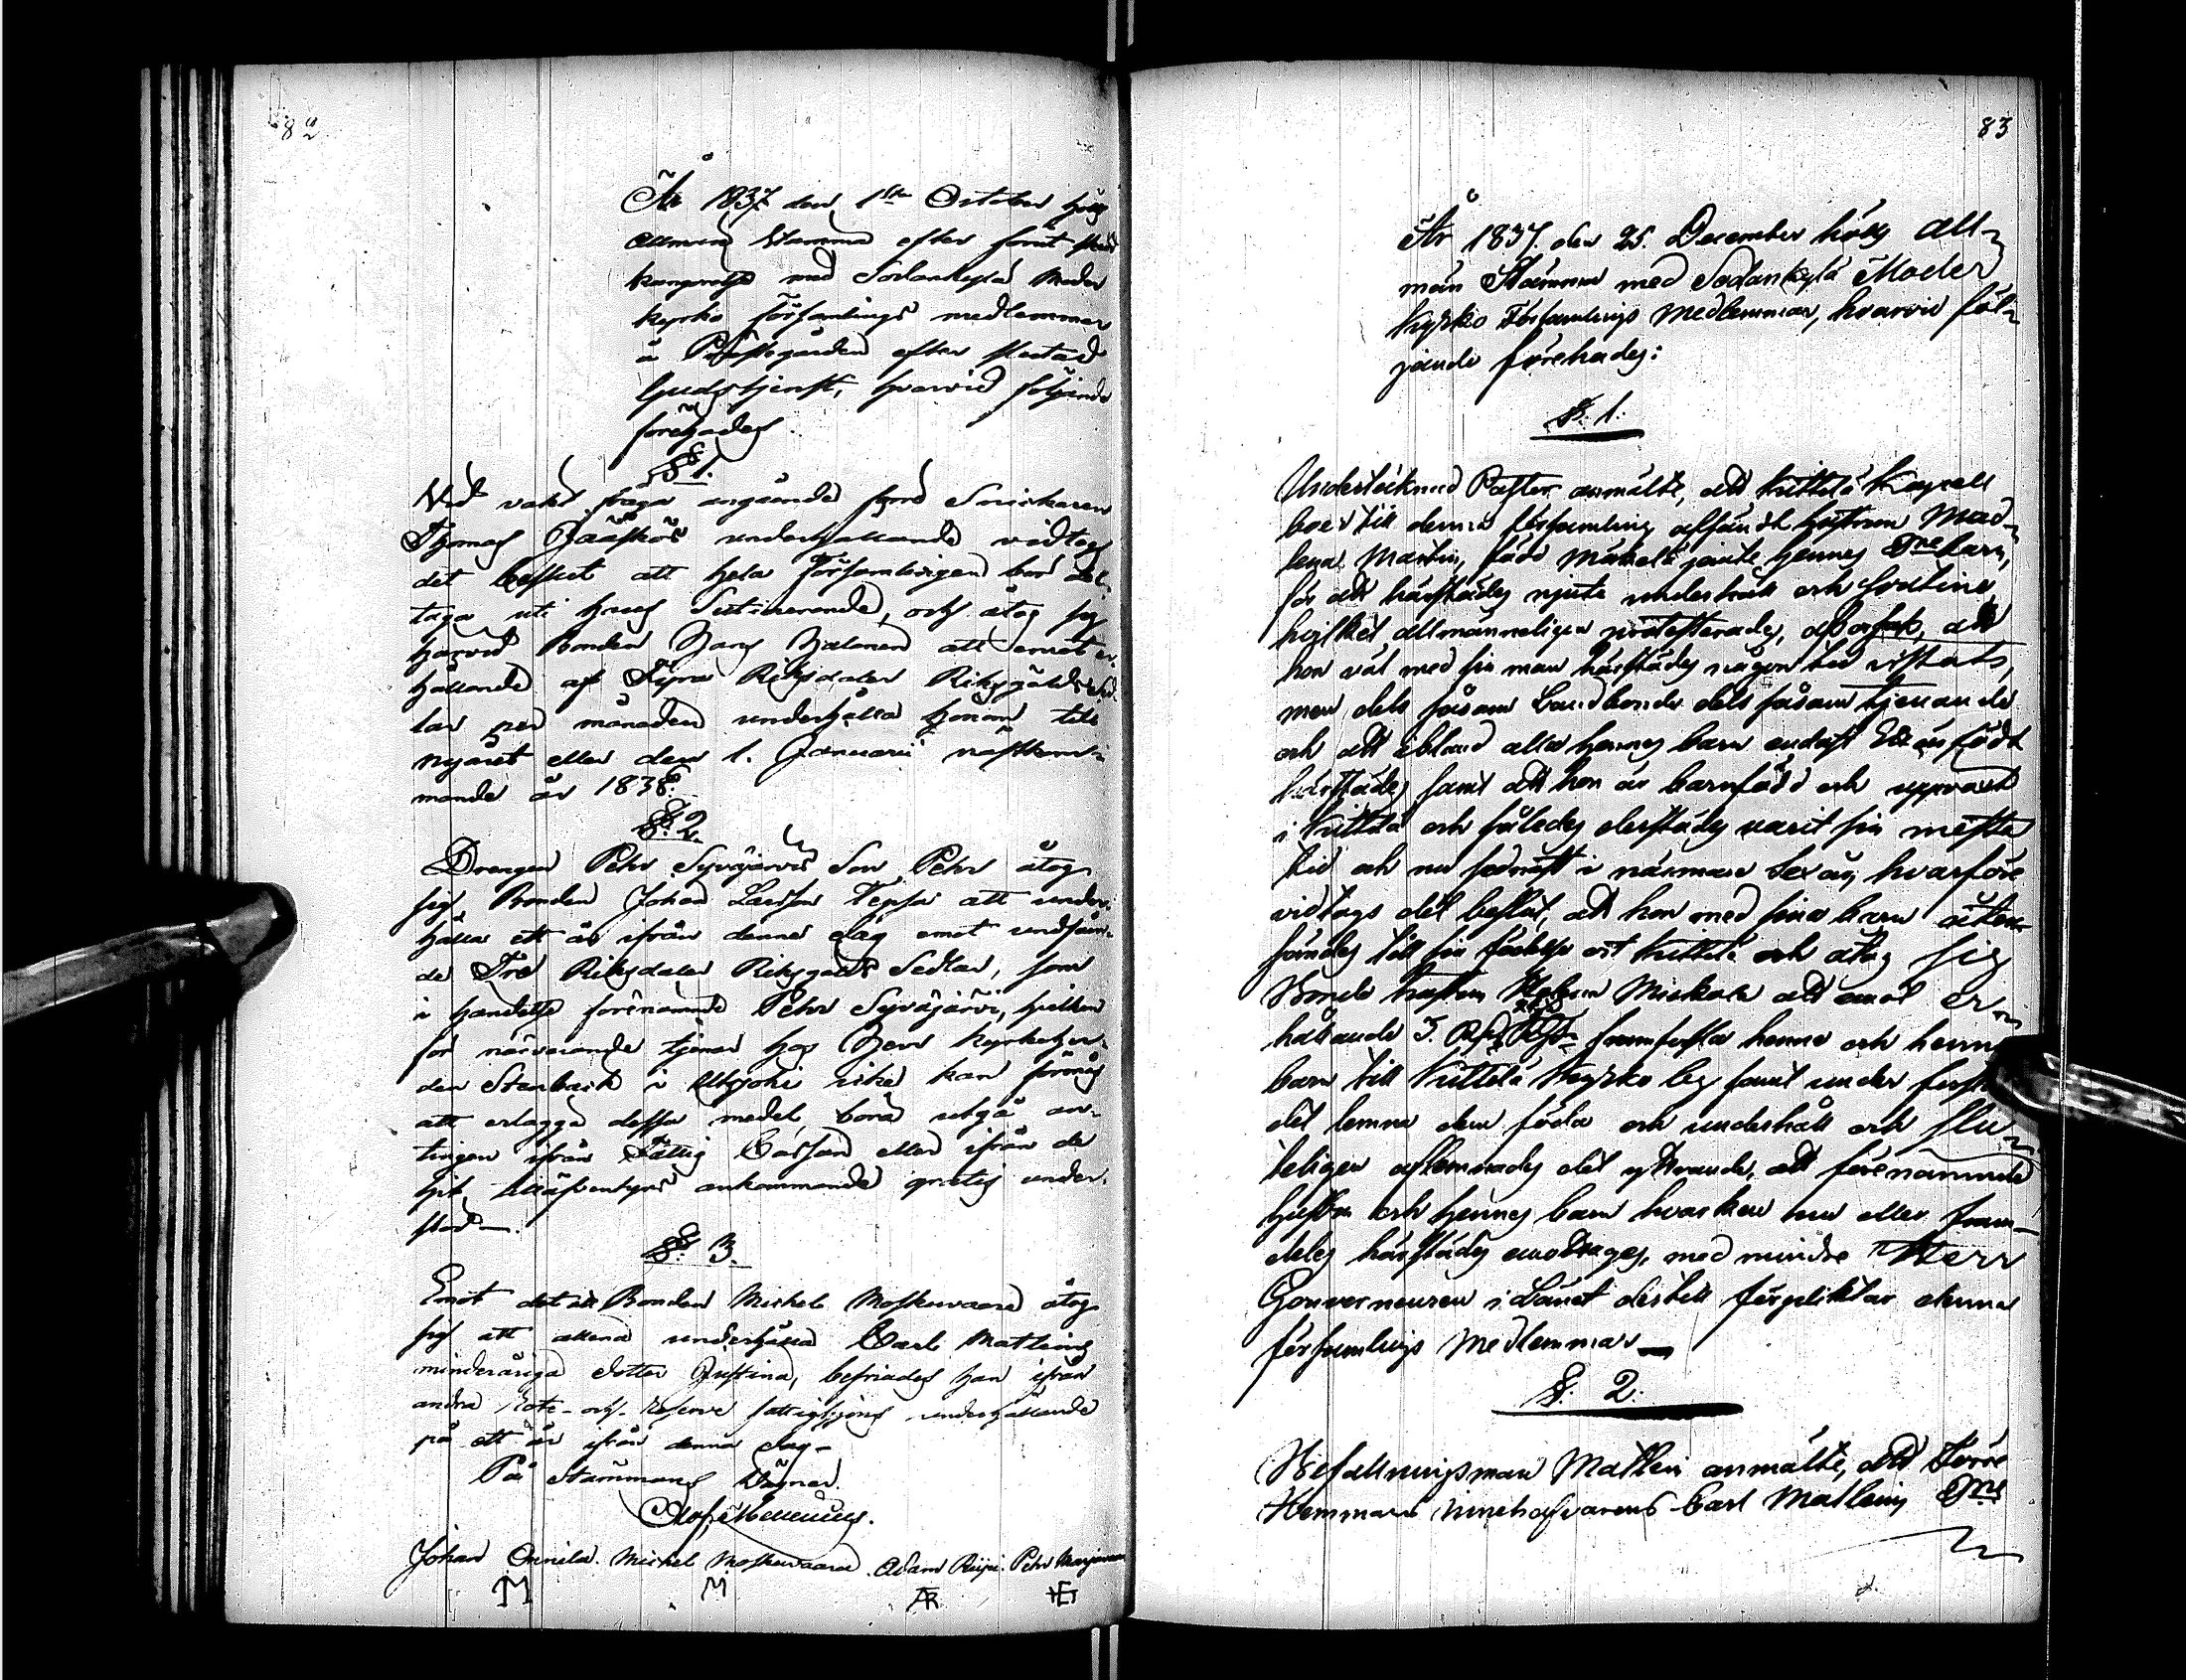 82
År 1837 den 1sta October höls
allmen Stämma efter förut skedd
kungörelse med Sodankylä Moder
kyrko församlings medlemmar
å Prästegården efter slutad
Gudstjenst, hvarvid följande
förehades
§ 1.
Vid väckt fråga angående förre Snickaren
Thomas Jääskös underhållande vidtogs
det beslut att hela församlingen bör del-
taga uti hans Sustinerande, och åtog sig
härvid Bonden Hans Halonen att emot er-
hållande af Fyra Riksdaler Riksgälds Sed-
lar per månaden underhålla honom till
nyåret eller den 1. Januarii nästkom-
mande år 1838.
§. 2.
Drengen Pehr Syväjärvis Son Pehr åtog
sig Bonden Johan Larsson Tepsa att under-
hålla ett år ifrån denna dag emot undfåen-
de Tre Riksdaler Riksgälds Sedlar, som
i händelse förenämnde Pehr Syväjärvi, hvilken
för närvarande tjenar hos Herr Kyrkoher-
den Stenbäck i Utsjoki icke kan förmås
att erlägga dessa medel, böra utgå an-
tingen ifrån Fattig Cassan eller ifrån de
hit ankommande gratis under-
stöd.
§. 3.
Emot det att Bonden Michel Moskuvaara åtog
sig att allena underhålla Carl Matleins
minderåriga dotter Justina, befriades han ifrån
andra Rote- och Reserve fattighjons underhållande
på ett år ifrån denna dag.
På Stämmans Vägnar.
Olof Mellenius.
Johan Onnela. Michel Moskuvaara. Adam Riipi. Pehr
M M AR
83
År 1837. den 25. December höls all-
män Stämma med Sodankylä Moder
kyrko Församlings Medlemmar, hvarvid föl-
jande förehades:
§. 1.
Undertecknad Pastor anmälte, att Kittilä Kapell
boer till denna församling afsändt hustrun Mad-
lena Martin, född jemte hennes 3ne barn,
för att härstädes njuta underhåll och
hvilket allmänneligen protesterades, att
hon väl med sin man härstädes någon tid vistats,
men dels såsom Landbonde dels såsom tjenande
och att ibland alla hennes barn endast Ett är född
härstädes samt att hon är barnfödd och uppväxt
i Kittilä och således derstädes varit sin mesta
tid och nu sednast i närmare sex år, hvarföre
vidtogs det beslut, att hon med sina barn åter-
sändes till sin födelse ort Kittilä och åtog sig
Bonde hustrun Miskala att emot er-
hållande 3. Rdr framforsla henne och hennes
barn till Kittilä Kyrko by samt under forslan-
det lemna dem föda och underhåll och slu-
teligen aflemnades det yttrande, att förenämnde
hustru och hennes barn hvarken nu eller fram-
deles härstädes emottages, med mindre Herr
Gouverneuren i Länet dertill förpliktar denna
församlings Medlemmar
§. 2.
Befallningsman Matlein anmälte, att Förre
Hemmans innehafvarens Carl Matleins 3ne